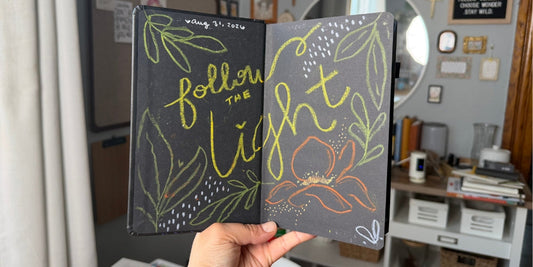 Aug 31, 2026
follow
THE
Light
CHOOSE WONDER
STAY WILD.